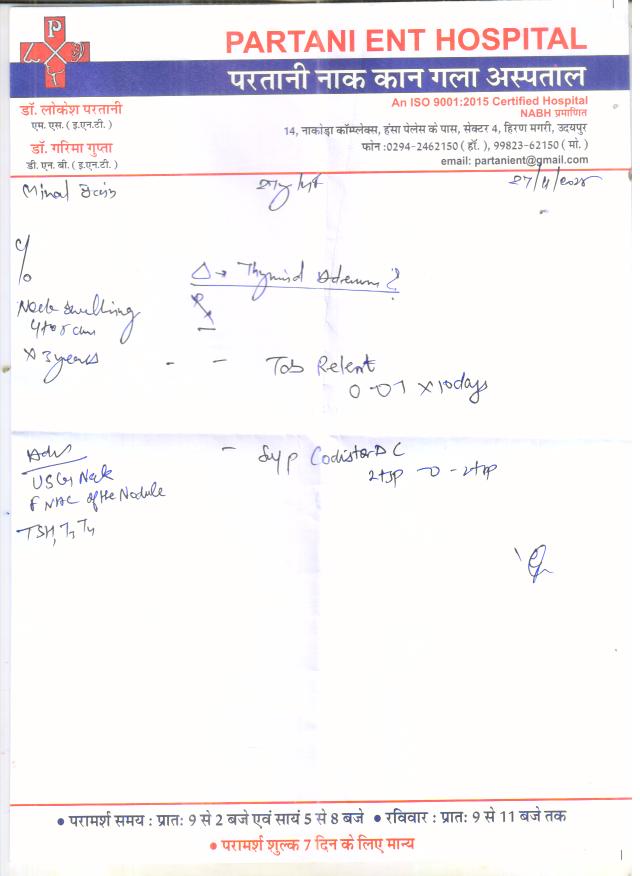 P
PARTANI ENT HOSPITAL
परतानी नाक कान गला अस्पताल
An ISO 9001:2015 Certified Hospital
NABH प्रमाणित
डॉ. लोकेश परतानी
एम. एस. ( इ.एन.टी. )
डॉ. गरिमा गुप्ता
डी. एन. बी. ( इ.एन.टी. )
14, नाकोड़ा कॉम्प्लेक्स, हंसा पेलेस के पास, सेक्टर 4, हिरण मगरी, उदयपुर
फोन :0294-2462150 ( हॉ. ), 99823-62150 ( मो. )
email: partanient@gmail.com
Minal
27/11/
C/o
Neck swelling
x 3 years
Δ → Thyroid Adenoma ?
- - Tab Relent
0-0-1 x 10 days
- Syp Codistar DC
2tsp -0- 2tsp
Adv
USG Neck
FNAC of the Nodule
TSH, T3 T4
• परामर्श समय : प्रातः 9 से 2 बजे एवं सायं 5 से 8 बजे • रविवार : प्रातः 9 से 11 बजे तक
• परामर्श शुल्क 7 दिन के लिए मान्य